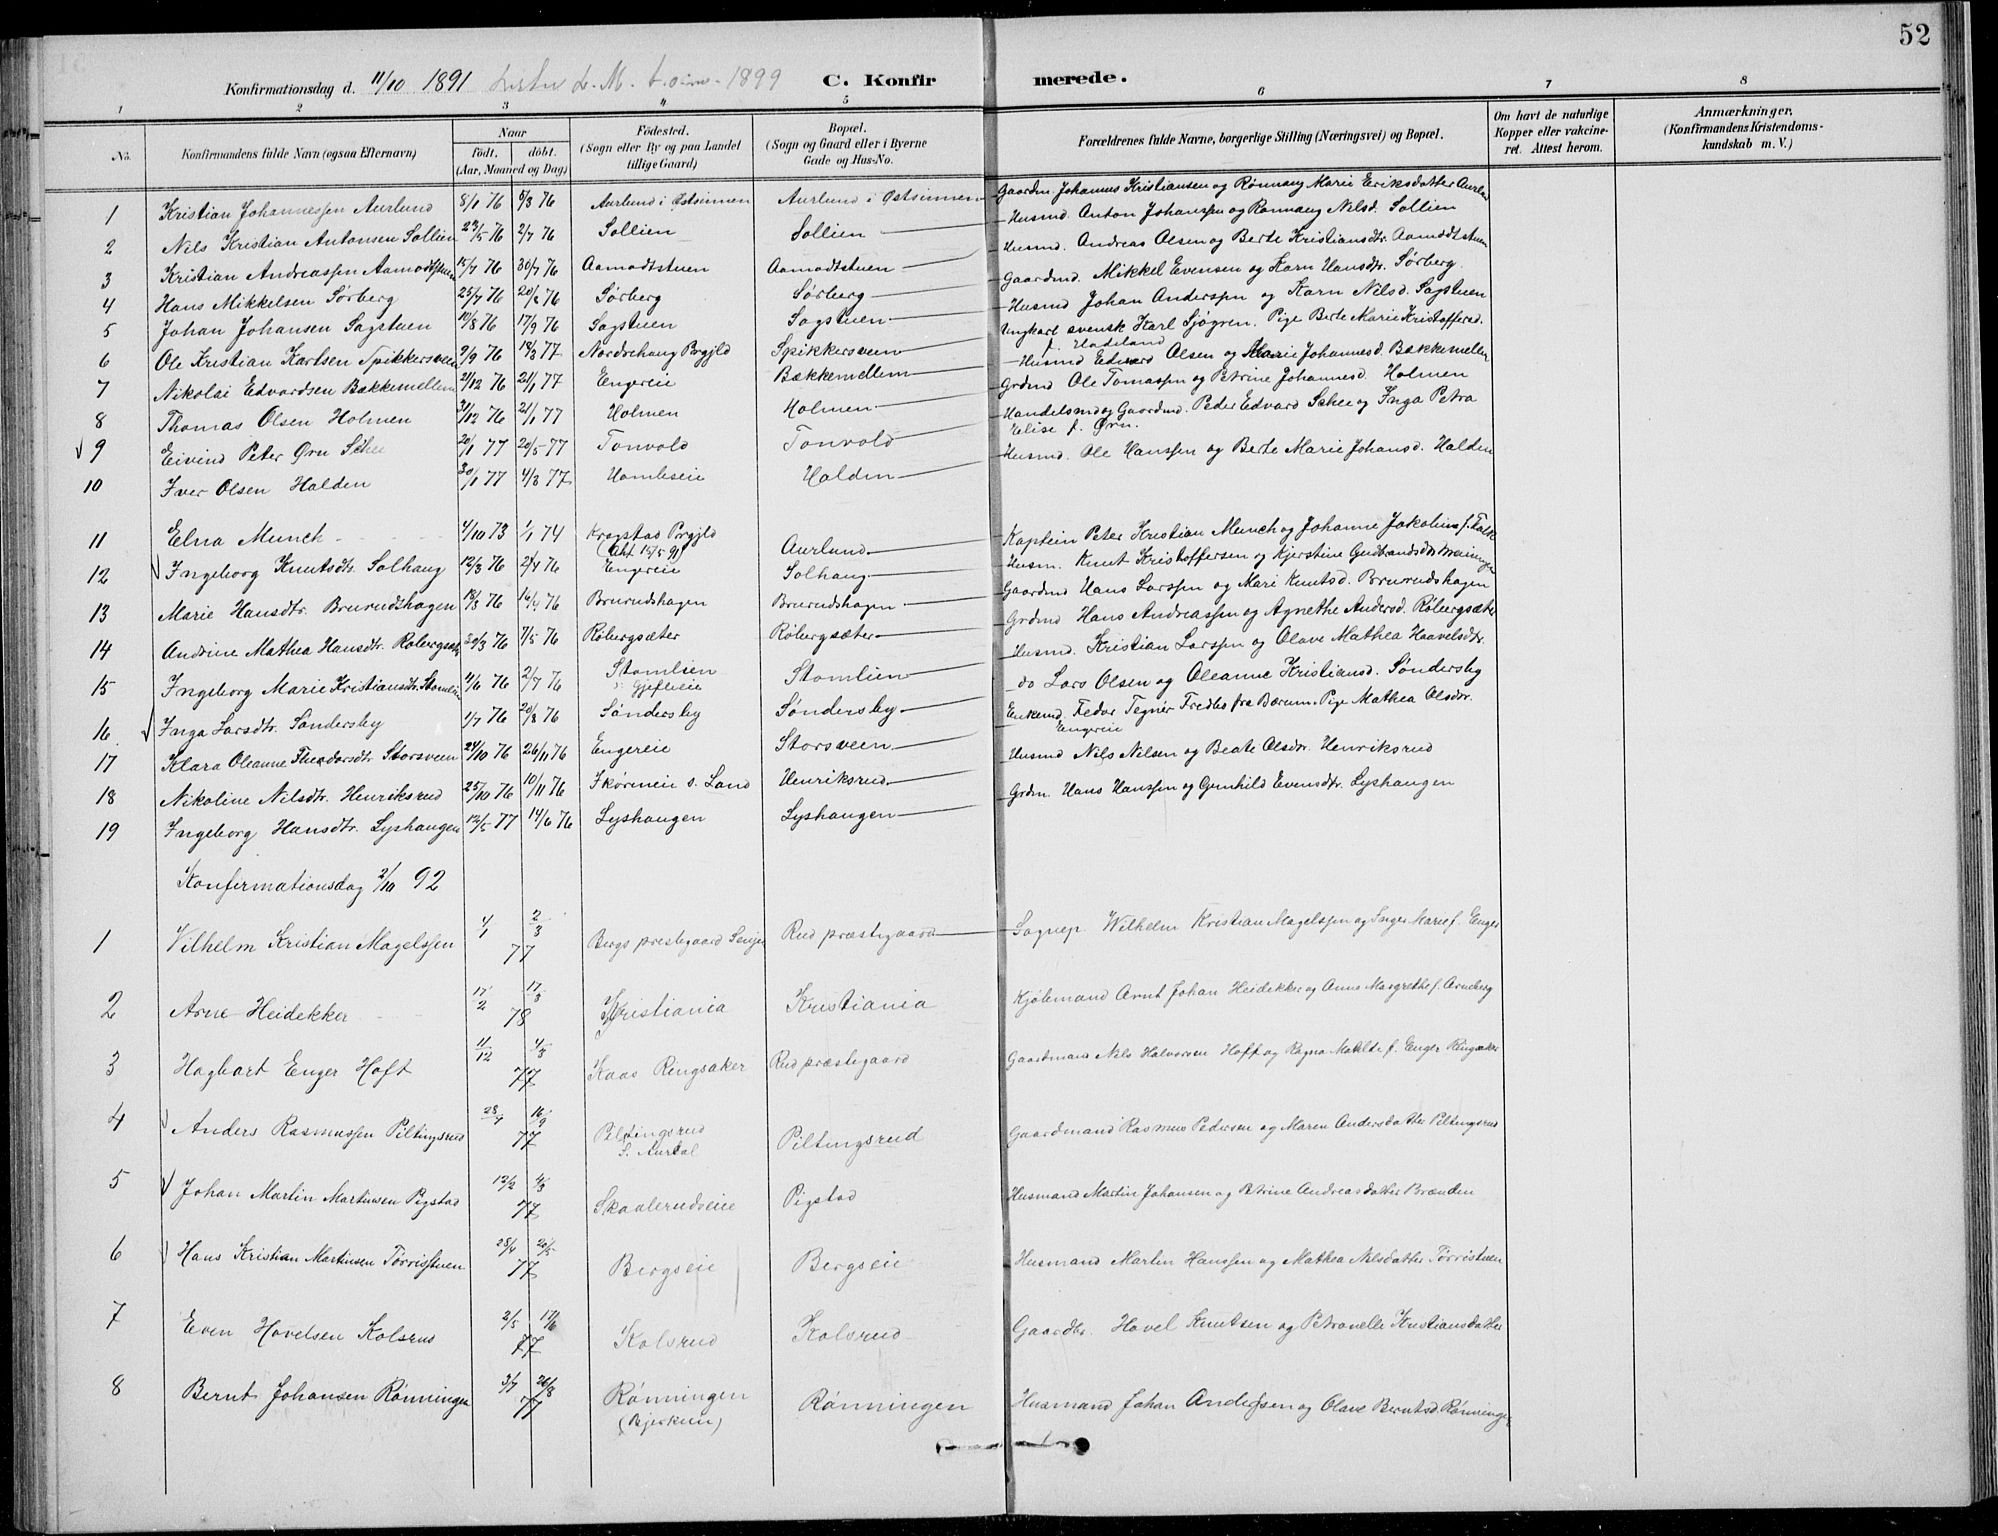 52
Konfirmationsdag d. 11/10 1891 1899 C. Konfirmerede.
1 2 3 4 5 6 7 8
No. Konfirmandens fulde Navn (ogsaa Efternavn) Naar födt. döbt. (Aar, Maaned og Dag) Födested. (Sogn eller By og paa Landet tillige Gaard) Bopæl. (Sogn og Gaard eller i Byerne Gade og Hus-No. Forældrenes fulde Navne, borgerlige Stilling (Næringsvei) og Bopæl. Om havt de naturlige Kopper eller vakcineret. Attest herom. Anmærkninger, (Konfirmandens Kristendomskundskab m. V.)
1 Kristian Johannessen Aurlund 8/1 76 5/3 76 Aurlund i Østsinnen Aurlund i Østsinnen Gaardm. Johannes Kristiansen og Rønnaug Marie Eriksdatter Aurlund
2 Nils Kristian Antonsen Sollien 23/5 76 2/7 76 Sollien Sollien Husmd. Anton Johanssen og Rønnaug Nilsd. Sollien
3 Kristian Andreassen Aamodtstuen 15/7 76 30/7 76 Aamodtstuen Aamodtstuen Husmd. Andreas Olsen og Berte Kristiansdtr. Aamodtstuen
4 Hans Mikkelsen Sørberg 25/7 76 20/8 76 Sørberg Sørberg Gaardmd. Mikkel Evensen og Karn Hansdtr. Sørberg
5 Johan Johansen Sagstuen 10/8 76 17/9 76 Sagstuen Sagstuen Husmd Johan Anderssen og Karn Nilsd. Sagstuen
6 Ole Kristian Karlsen Spikkersveen 9/9 76 18/3 77 Nordrehaug Prgjld Spikkersveen Ungkarl svensk Karl Sjøgren. Pige Berte Marie Kristoffersd. f. Hadeland
7 Nikolai Edvardsen Bækkemellem 21/12 76 21/1 77 Engereie Bækkemellem Husmd Edvard Olsen og Marie Johannesd. Bækkemellem
8 Thomas Olsen Holmen 31/12 76 21/1 77 Holmen Holmen Grdmd Ole Tomassen og Petrine Johannesd. Holmen
9 Eivind Peter Ørn Schee 20/1 77 20/5 77 Tonvold Tonvold Handelsmd og Gaardmd. Peder Edvard Schee og Inga Petra Elise f. Ørn.
10 Iver Olsen Halden 30/1 77 4/3 77 Homleseie Halden Husmd. Ole Hanssen og Berte Marie Johansd. Halden
11 Elna Munch 4/10 73 1/1 74 Kragstad Prgjld (Akt. 15/5 91) Aurlund Kaptein Peter Kristian Munch og Johanne Jakobine f. Falck
12 Ingeborg Knutsdtr. Solhaug 12/3 76 2/4 76 Engereie Solhaug Husm. Knut Kristoffersen og Kjerstine Gudbrandsdtr
13 Marie Hansdtr. Brurudshagen 18/3 76 16/4 76 Brurudshagen Brurudshagen Gaardmd Hans Larssen og Mari Knutsd. Brurudshagen
14 Andrine Mathea Hansdtr. Røbergsæter 30/3 76 7/5 76 Røbergsæter Røbergsæter Grdmd Hans Andreassen og Agnethe Andersd. Røbergsæter
15 Ingeborg Marie Kristiansdtr. Stomlien 11/6 76 2/7 76 Stomlien Gjefleeie Stomlien Husmd. Kristian Larssen og Olave Mathea Haavelsdtr.
16 Inga Larsdtr. Søndersby 1/7 76 20/8 76 Søndersby Søndersby do Lars Olsen og Oleanne Kristiansd. Søndersby
17 Klara Oleanne Theodorsdtr. Storsveen 24/10 76 26/11 76 Engereie Storsveen Enkemd. Fedor Tegnér Fredbs fra Bærum. Pige Mathea Olsdtr. Engereie
18 Nikoline Nilsdtr. Henriksrud 25/10 76 10/11 76 s. Land Henriksrud Husmd Nils Nilsen og Beate Olsdtr. Henriksrud
19 Ingeborg Hansdtr. Lyshaugen 12/5 77 14/6 76 Lyshaugen Lyshaugen Grdm. Hans Hanssen og Gunhild Evensdtr. Lyshaugen
Konfirmationsdag 2/10 92
1 Vilhelm Kristian Magelssen 4/1 2/3 77 Bergs prestegaard Senjen Rud præstegaard Sognep. Wilhelm Kristian Magelssen og Inger Marie f. Enger
2 Arne Heidekker 17/2 17/3 78 Kristiania Kristiania Kjøbmand Arnt Johan Heidekker og Anne Margrethe f. Arneberg
3 Hagbart Enger Hoft 11/12 4/3 77 Kaas Ringsaker Rud præstegaard Gaardmand Nils Halvorsen Hoff og Ragna Matilde f. Enger Ringsaker
4 Anders Rasmussen Piltingsrud 28/4 16/9 77 Piltingsrud S. Aurdal Piltingsrud Gaardmand Rasmus Pedersen og Maren Andersdatter Piltingsrud
5 Johan Martin Martinsen Pigstad 12/2 4/3 77 Skaalerudseie Pigstad Husmand Martin Johansen og Petrine Andreasdatter Brænden
6 Hans Kristian Martinsen Tørrisstuen 28/4 20/5 77 Bergseie Bergseie Husmand Martin Hanssen og Mathea Nilsdatter Tørristuen
7 Even Hovelsen Kolsrud 2/5 17/6 77 Kolsrud Kolsrud Gaardbr. Hovel Knutsen og Petronelle Kristiansdatter
8 Bernt Johansen Rønningen 3/7 26/8 77 Rønningen (Bjerkeeie) Rønningen Husmand Johan Anderssen og Olave Berntsd. Rønningen